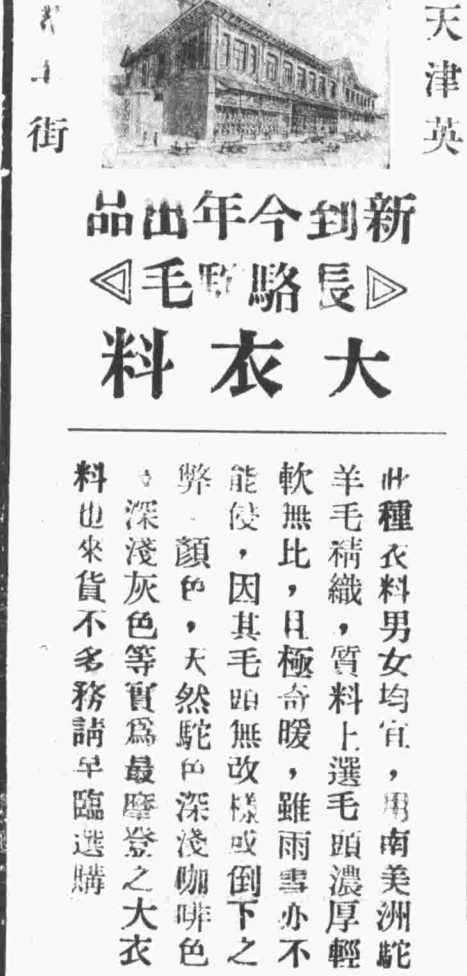 天津英
街
新到今年出品
長駱駝毛
大衣料
此種衣料男女均宜，用南美洲駝
羊毛精織，質料上選毛頭濃厚輕
軟無比，且極奇暖，雖雨雪亦不
能侵，因其毛頭無改樣或倒下之
弊．顏色，天然駝色深淺咖啡色
、深淺灰色等實爲最摩登之大衣
料也來貨不多務請早臨選購